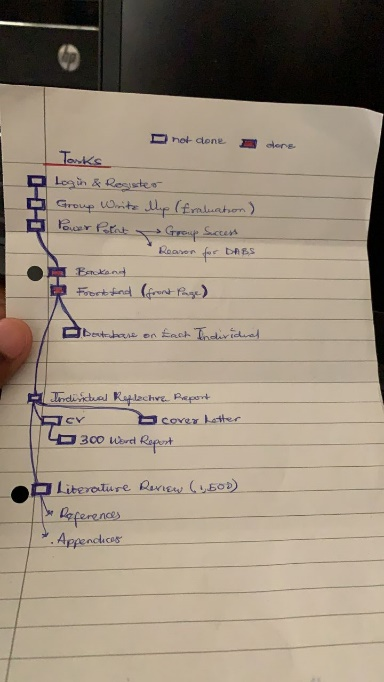 hp
not done done
Tasks
Login & Register
Group Write Up (Evaluation)
Power Point → Group Success
Reason for DABS
Backend
Frontend (front Page)
Database on Each Individual
Individual Reflective Report
CV cover Letter
300 Word Report
Literature Review (1,500)
References
. Appendices